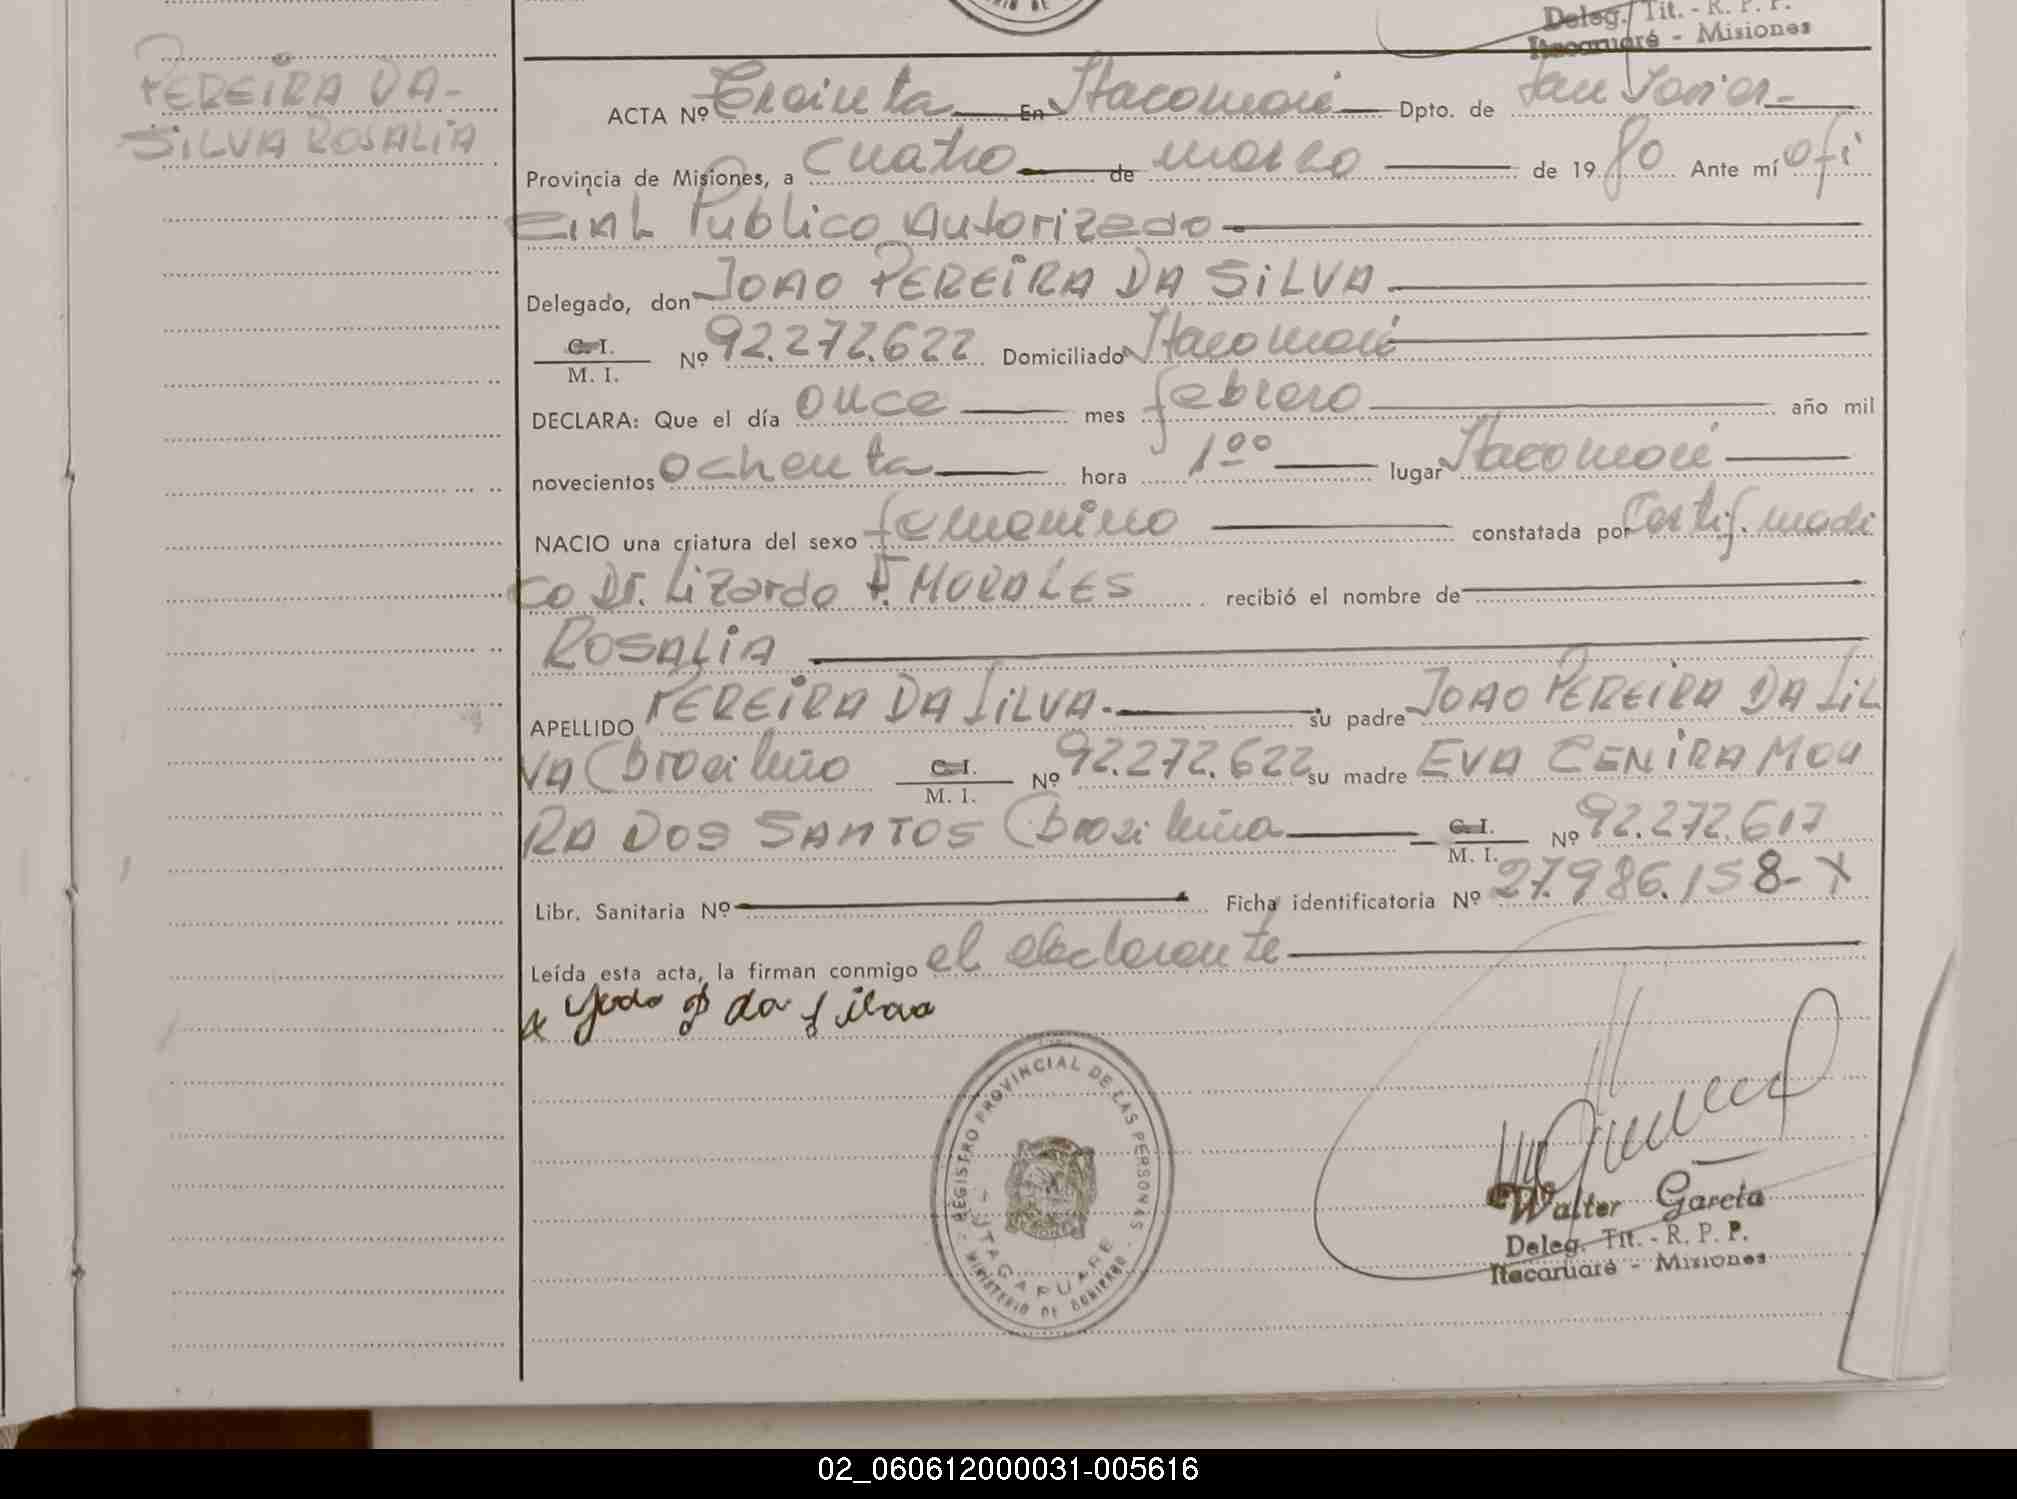 Deleg. Tit. - R. P. P.
Itacaruaré - Misiones
PEREIRA DA-
SILVA ROSALIA
ACTA Nº Treinta En Itacaruaré Dpto. de San Javier-
Provincia de Misiones, a cuatro de marzo de 1980 Ante mí ofi
cial Publico Autorizado
Delegado, don JOAO PEREIRA DA SILVA
C. I.
M. I. Nº 92.272.622 Domiciliado Itacaruaré
DECLARA: Que el día once mes febrero año mil
novecientos ochenta hora 1°° lugar Itacaruaré
NACIO una criatura del sexo femenino constatada por Certif. medi
co Dr. Lizardo F. MORALES recibió el nombre de
ROSALIA
APELLIDO PEREIRA DA SILVA.- su padre JOAO PEREIRA DA SIL
VA (brasileño C. I. M. I. Nº 92.272.622 su madre EVA CENIRA MOU
RA DOS SANTOS (brasileña C. I. M. I. Nº 92.272.617
Libr. Sanitaria Nº Ficha identificatoria Nº 27.986.158-X
Leída esta acta, la firman conmigo el declarante
x João P da Silva
REGISTRO PROVINCIAL DE LAS PERSONAS - MINISTERIO DE GOBIERNO -
- ITACARUARE
Walter García
Deleg. Tit. - R. P. P.
Itacaruaré - Misiones
02_060612000031-005616